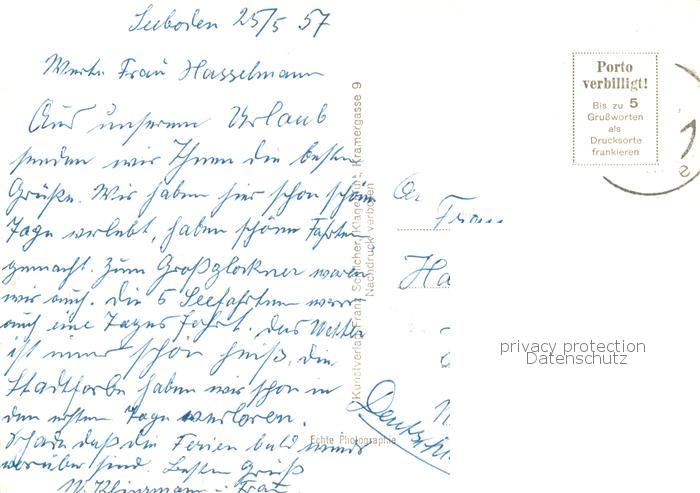 Seeboden 25/5 57
Werte Frau Hasselmann
Aus unserem Urlaub
senden wir Ihnen die besten
Grüße. Wir haben hier schon schöne
Tage verlebt, haben schöne Fahrten
gemacht. Zum Großglockner waren
wir auch. Die 5 Seefahrten war
auch eine Tages Fahrt. Das Wetter
ist immer schön heiß, die
Stadtfarbe haben wir schon in
den ersten Tage verloren.
Schade daß die Ferien bald wieder
vorüber sind. Besten Gruß
W. Klingmann u. Frau
Kunstverlag Franz Schilcher, Klagenfurt, Kramergasse 9
Nachdruck verboten
Echte Photographie
Porto
verbilligt!
Bis zu 5
Grußworten
als
Drucksorte
frankieren
An Frau
Ha
Deutschl
privacy protection
Datenschutz